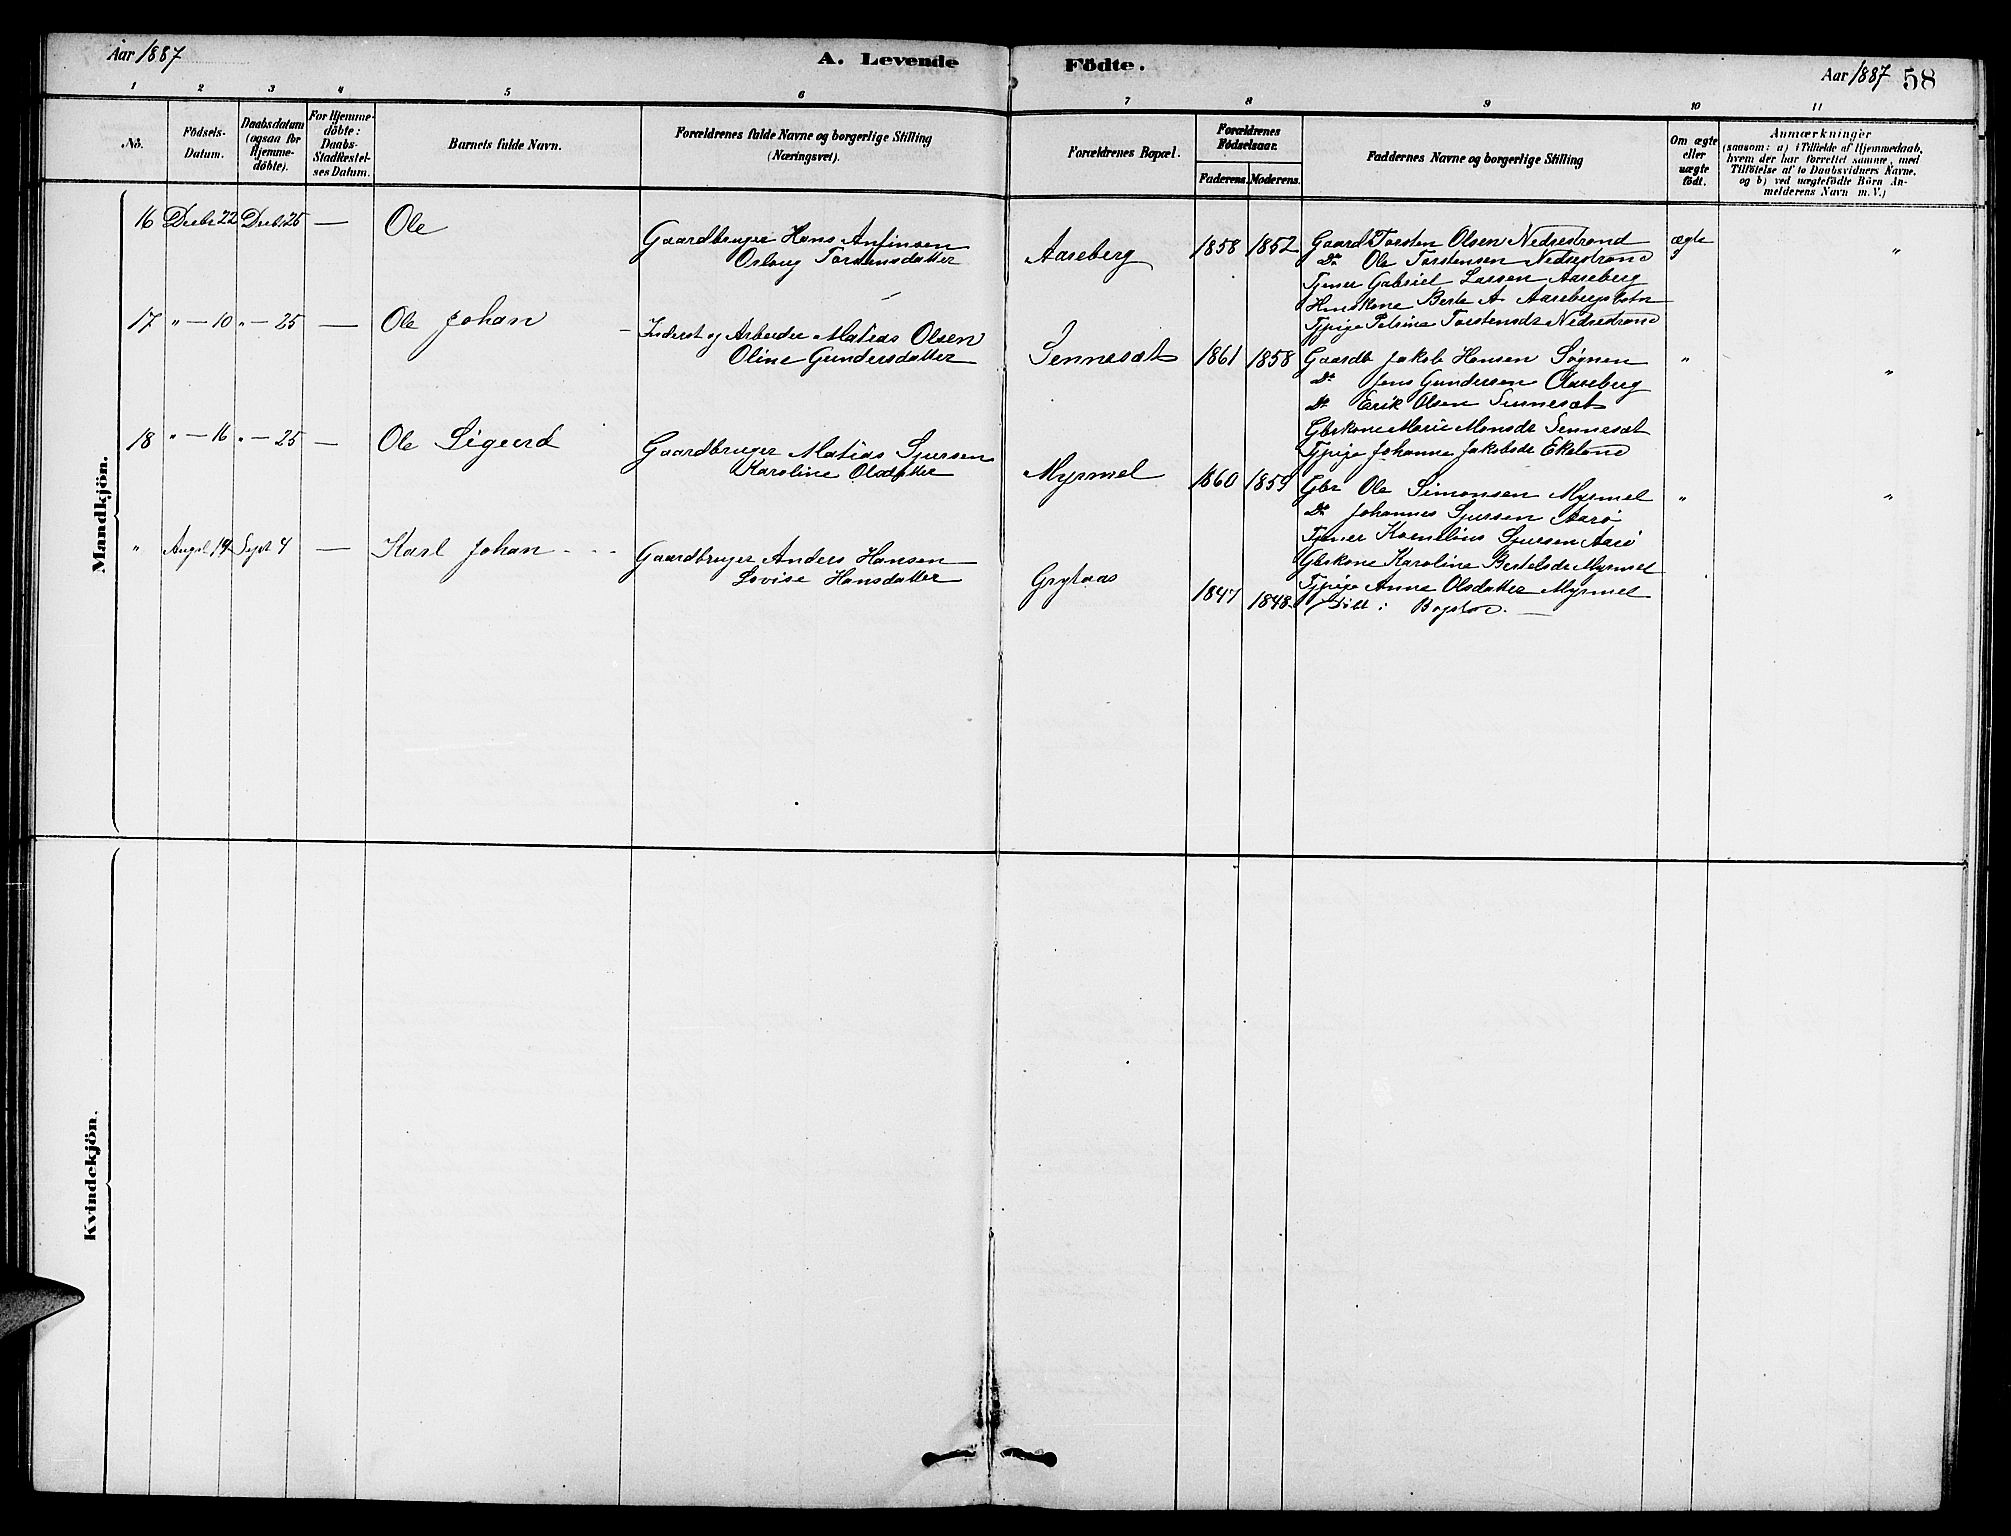 Aar 1887
A. Levende Födte.
Aar 1887 58
1 2 3 4 5 6 7 8 9 10 11
No.
Födsels-Datum.
Daabsdatum (ogsaa for Hjemme-döbte).
For Hjemme-döbte: Daabs-Stadfestel-ses Datum.
Barnets fulde Navn.
Forældrenes fulde Navne og borgerlige Stilling (Næringsvei).
Forældrenes Bopæl.
Forældrenes Födselsaar.
Faderens. Moderens.
Faddernes Navne og borgerlige Stilling
Om ægte eller uægte födt.
Anmærkninger
(saasom: a) i Tilfælde af Hjemmedaab,
hvem der har forrettet samme, med
Tilföielse af to Daabsvidners Navne.
og b) ved uægtefödte Börn An-
melderens Navn m. V.)
Mandkjön.
16 Decbr 22 Decbr 25 — Ole
Gaardbruger Hans Anfinsen
Oslaug Torstensdatter
Aaseberg 1858 1852
Gaardb Torsten Olsen Nedrestrand
Do Ole Torstensen Nedrestrand
Tjener Gabriel Larsen Aaseberg
Huuskone Berte A. Aasebergsbotn
Tjpige Petrine Torstensdr Nedrestrand
ægte "
17 " — 10 " — 25 — Ole Johan —
Inderst og Arbeider Matias Olsen
Oline Gundersdatter
Sennesæt 1861 1858
Gaardb Jakob Hansen Sognen
Do Jens Gundersen Aaseberg
Do Erik Olsen Sennesæt
Gbrkone Marie Monsdr Sennesæt
Tjpige Johanne Jakobsdr Ekeland
" "
18 " — 16 " — 25 — Ole Sigurd
Gaardbruger Matias Sjursen
Karoline Olsdatter
Myrmel 1860 1859
Gbr Ole Simonsen Myrmel
Do Johannes Sjursen Aarø
Tjener Kornelius Sjursen Aarø
Gbrkone Karoline Bertelsdr Myrmel
Tjpige Anne Olsdatter Myrmel
" "
" Augst 14 Sept 4 — Karl Johan - - -
Gaardbruger Anders Hansen
Lovise Hansdatter
Grytaas 1847 1848
Født i Bogstad. —
Kvindekjön.